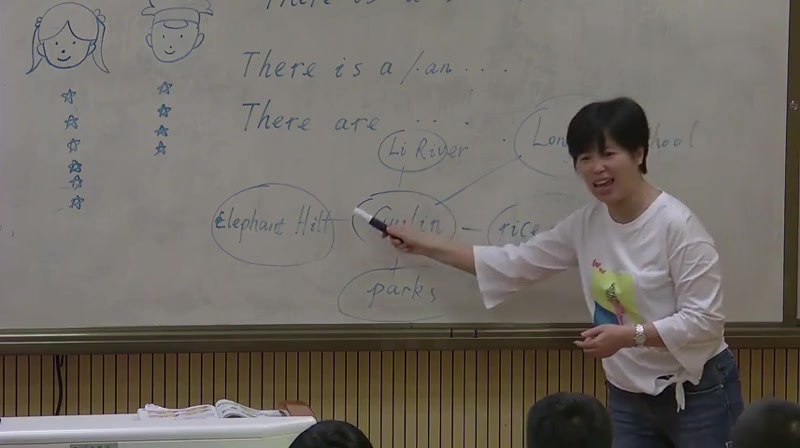 There is a
There is a / an ...
There are ....
Li River
Elephant Hill
Guilin
rice
parks